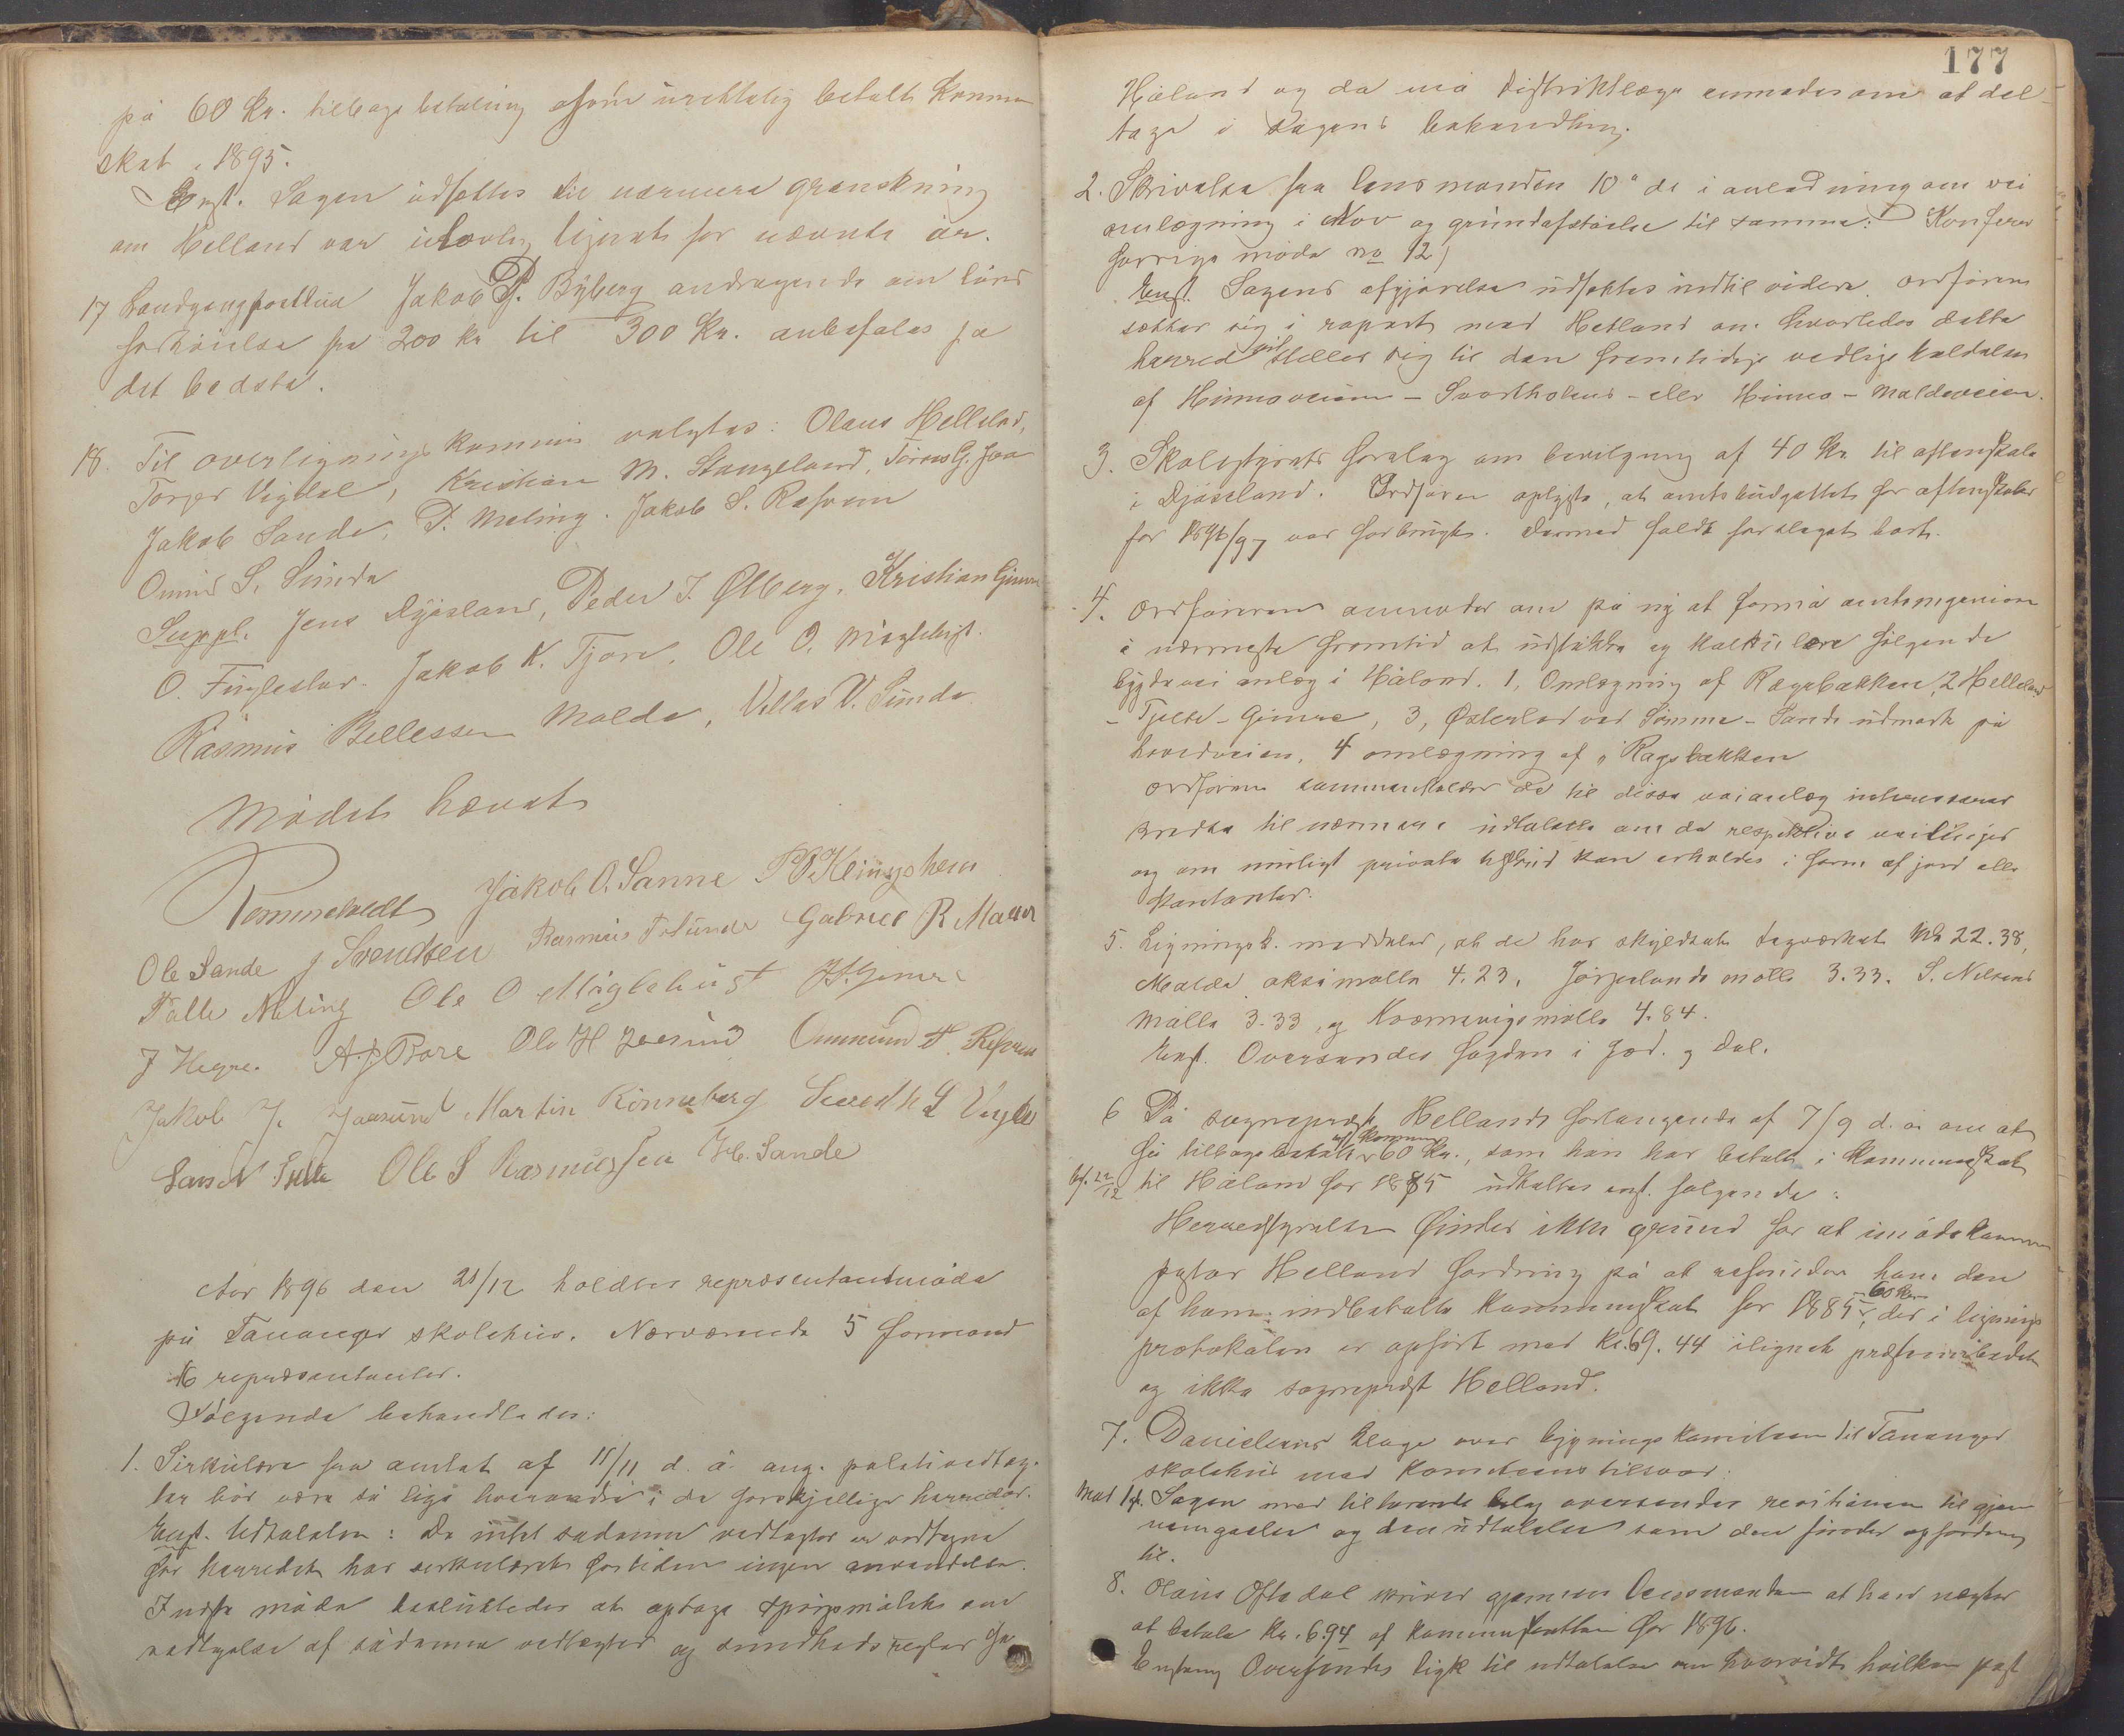 på 60 Kr. tilbagebetaling som urettelig betalt Kommu
skat i 1895.
Enst. Sagen udsættes til nærmere granskning
om Helland var ulovlig lignet for nævnte år.
17 Landgangfoellua Jakob P. Byberg andragende om løns
forhøielse fra 200 kr til 300 Kr. anbefales på
det bedste.
18. Til overlignings kommis valgtes: Olaus Helleland,
Torger Vigdal, Kristian M. Stangeland, Tørres G. Joa
Jakob Sande, P. Meling. Jakob S. Refsum
Omund S. Sunde
Suppl. Jens Djøsland, Peder J. Ølberg, Kristian Gimre
O. Fuglestar. Jakob K. Tjora, Ole O. Myglebust.
Rasmus Bellesen Malde, Vellas V. Sunde
Mødet hævet
Rommetvedt Jakob O. Sanne
Ole Sande J Svendsen Rasmus Gabriel R
Palle Meling Ole O Myglebust
J Hegre. A J Rore Ole H Joasund Ommund
Jakob J. Joasund Martin Rønneberg
Ole S Rasmussen H. Sande
Aar 1896 den 21/12 holdtes repræsentantmøde
på Tananger skolehus. Nærværende 5 formænd
16 repræsentanter.
Følgende behandledes:
1. Sirkulære fra amtet af 15/11 d. å. ang. politivedtæg
ter bør være så lige hverandre i de forskjellige herreder.
Enst. Udtalelse: Da intet sådanne vedtægter er vedtagne
for herredet har serkulæret fortiden ingen anvendelse.
I næste møde besluttedes at optage spørgsmålet om
vedtagelse af sådanne vedtægter og sundhedsregler for
177
Håland og da må Distriktlæge anmodes om at del
tage i sagens behandling.
2. Skrivelse fra lensmanden 10 ds i anledning om vei
omlægning i Nov og grundafståelse til samme: Konferer
forrige møde no 12)
Enst. Sagens afgjørelse udsættes indtil videre. ordføren
sætter sig i raport med Hetland om hvorledes dette
herred vil stiller sig til den fremtidige vedligeholdelse
af Hinnaveien – Svartholens – eller Hinna – Maldeveien.
3. Skolestyrets forslag om bevilgning af 40 Kr til aftenskole
i Djøseland. Ordføren oplyste, at amtsbudgettet for aftenskoler
for 1896/97 var forbrugt. Dermed faldt forslaget bort.
4. Ordføreren anmodes om på ny at formå amtsingeniøren
i nærmeste fremtid at udstikke og kalkulere følgende
bygdevei anlæg i Håland. 1, Omlægning af Ragebakken, 2 Helleland
– Tjelta – Gimre, 3, Østerlad ved Sømme – Sande udmark på
hovedveien, 4 omlægning af Ragsbakken
Ordføren sammenkalder de til disse veianlæg interesserede
kredse til nærmere udtalelse om de respektive veilinjer
og om muligt private tilskud kan erholdes i form af jord eller
kontanter.
5. Ligningsk. meddeler, at de har skyldsat Sagværket Kr 22.38,
Malde oksåmølle 4.23. Jørpelands mølle 3.33. S. Nilsens
mølle 3.33, og Kvernevigs mølle 4.84.
Enst. Oversendes fogden i Jæd. og Dal.
6 På sogneprest Hellands forlangende af 7/9 d. å. om at
få tilbagebetalt af kommun 60 Kr., som han har betalt i Kommuneskat
til Håland for 1885 udtaltes enst. følgende:
Herredstyrelsen finder ikke grund for at imødekomme
pastor Helland fordring på at refundere ham den
af ham indbetalte Kommuneskat for 1885, 60 kr der i lignings
protokolen er opført med Kr. 69.44 ilignet præsteembedet
og ikke sogneprest Helland.
7. Danielsens klage over bygningskomiteen til Tananger
skolehus med Komiteens tilsvar.
Mod 1 st. Sagen med tilhørende bilag oversendes revisionen til gjen
nemgåelse og den udtalelse som den finder opfordring
til.
8. Olaus Oftedal skriver gjennem lensmanden at han nægter
at betale Kr. 6.94 af kommuneskatten for 1896.
Enstemg Oversendes ligk til udtalelse om hvorvidt hvilken